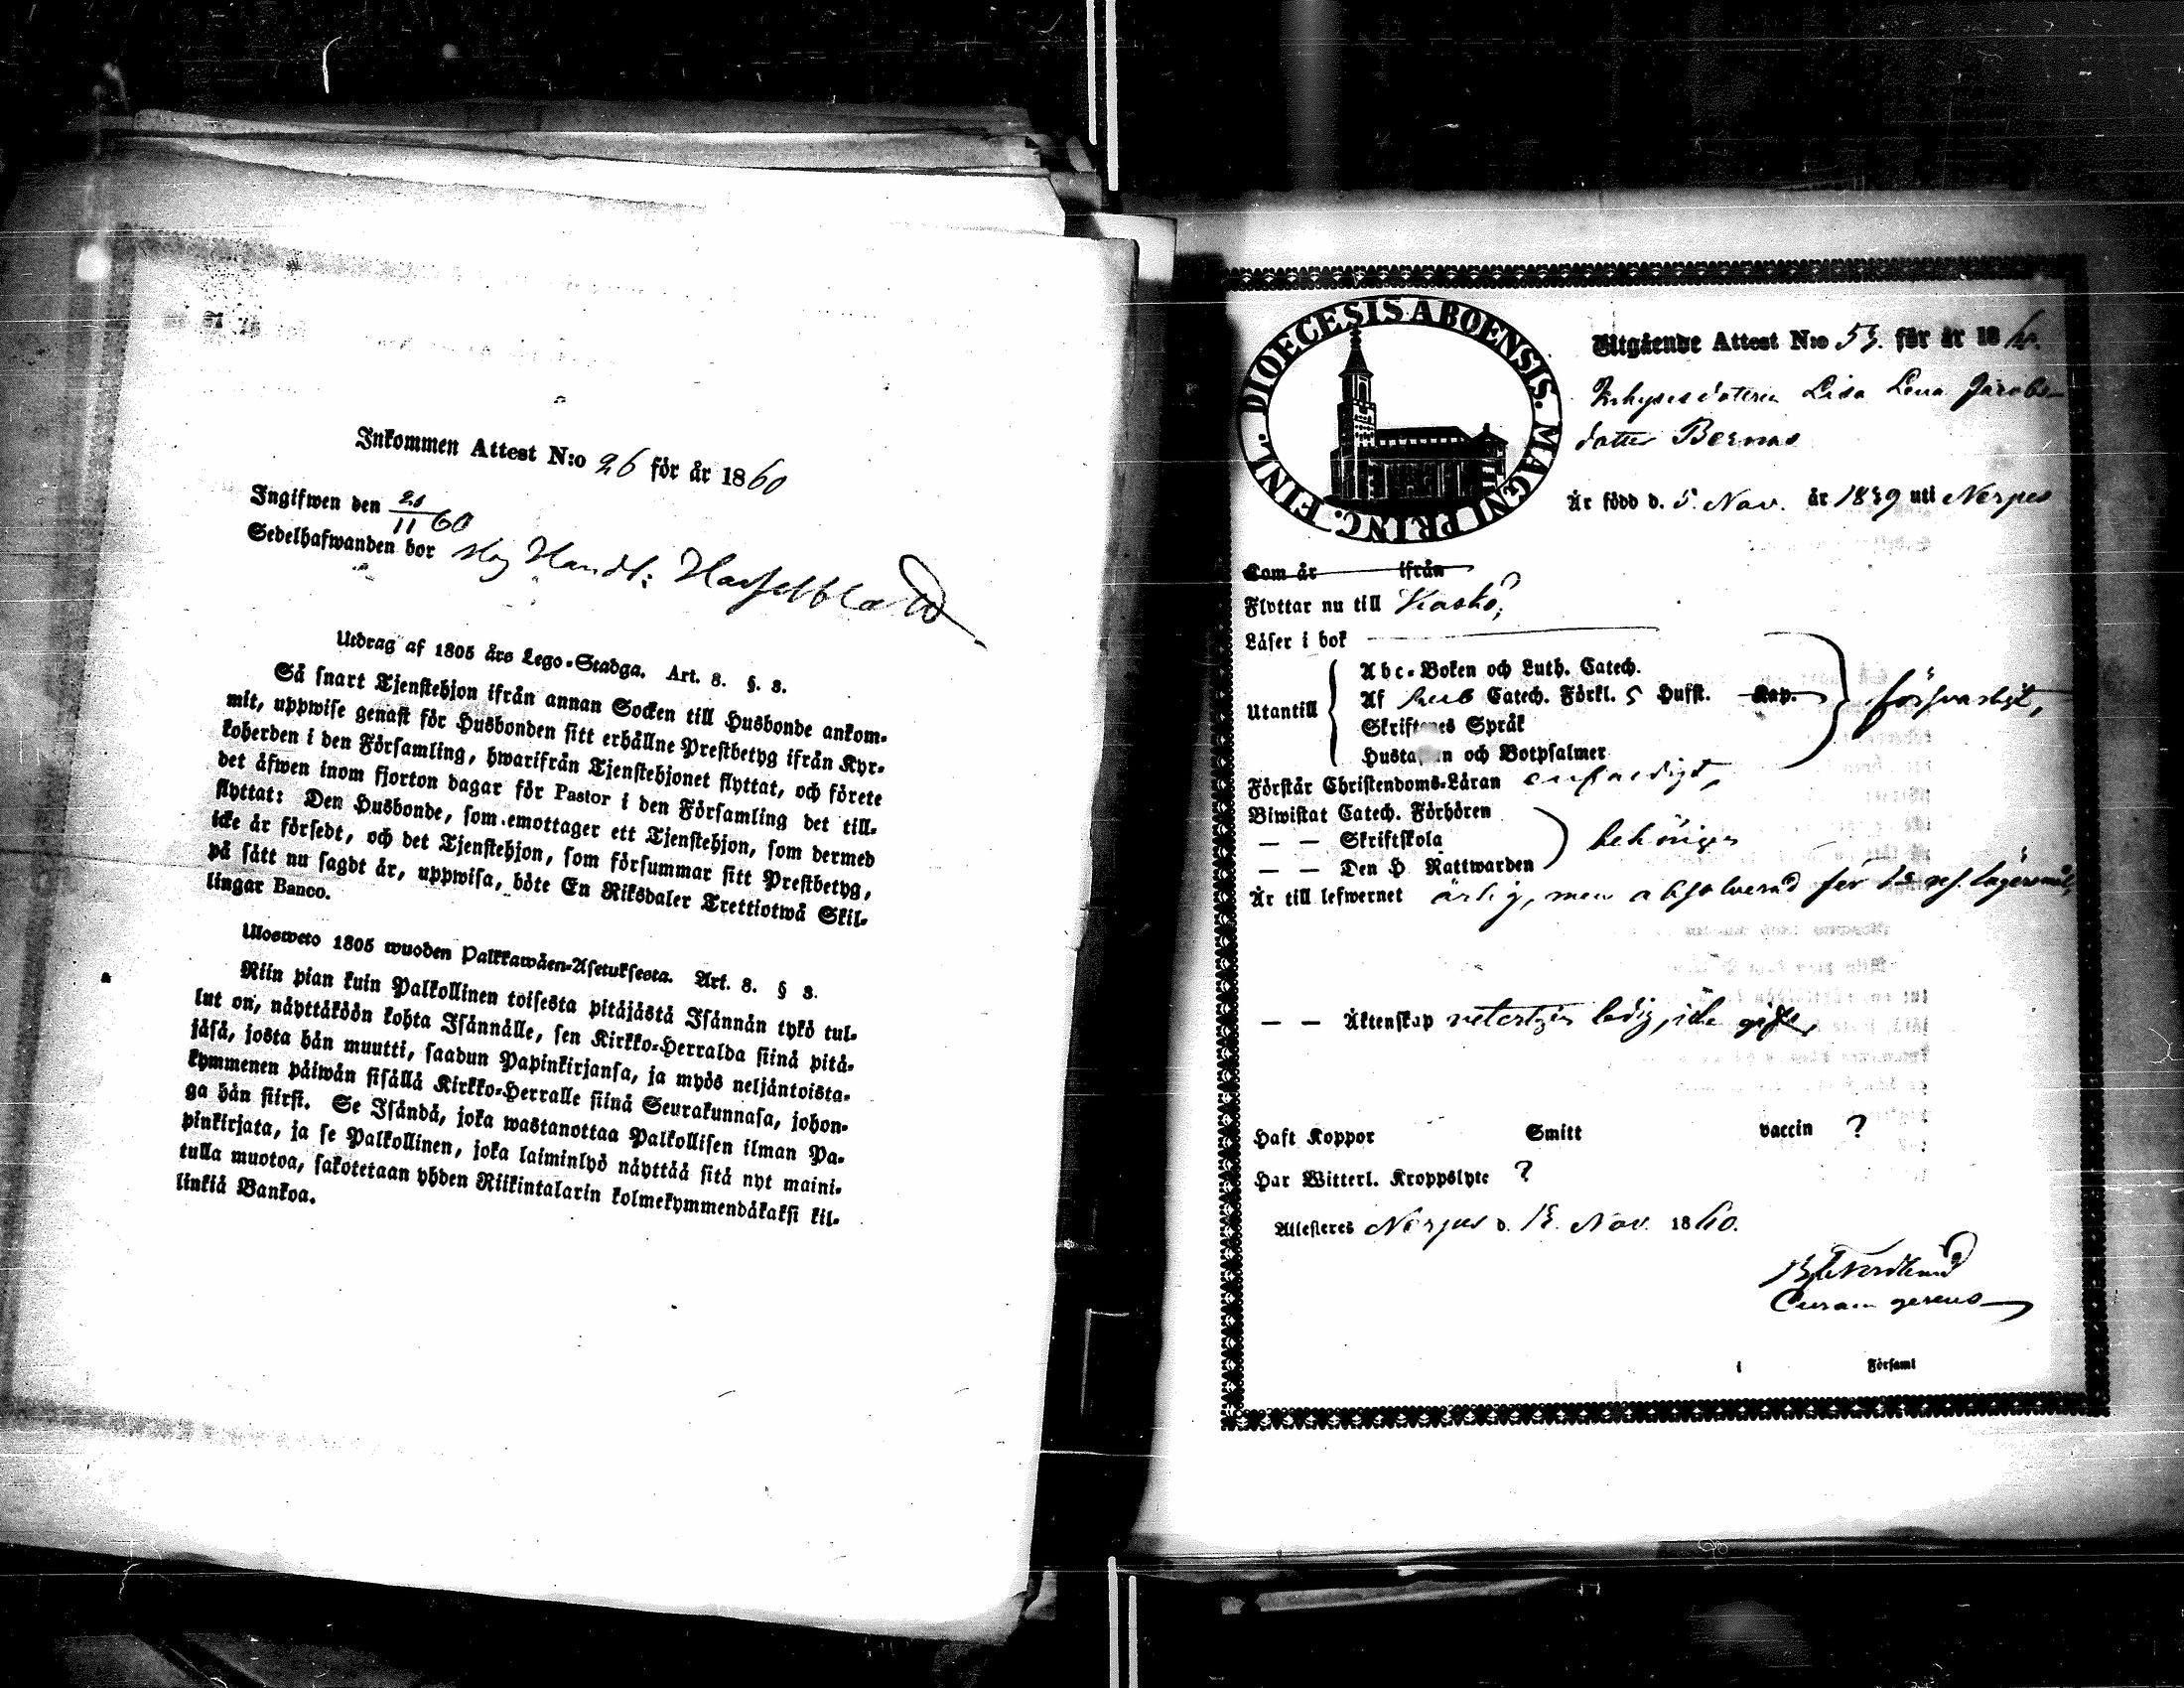 Inkommen Attest N:o 26 för år 1860
Ingifwen den 21/11 60
Sedelhafwanden bor Hos Handl: Hasselblad
Utdrag af 1805 års Lego-Stadga. Art. 8. §. 3.
Så snart Tjenstehjon ifrån annan Socken till Husbonde ankom-
mit, uppwise genast för Husbonden sitt erhållne Prestbetyg ifrån Kyr-
koherden i den Församling, hwarifrån Tjenstehjonet flyttat, och förete
det äfwen inom fjorton dagar för Pastor i den Församling det till-
flyttat: Den Husbonde, som emottager ett Tjenstehjon, som dermed
icke är försedt, och det Tjenstehjon, som försummar sitt Prestbetyg,
på sätt nu sagdt är, uppwisa, böte En Riksdaler Trettiotwå Skil-
lingar Banco.
Ulosweto 1805 wuoden Palkkawäen-Asetuksesta. Art. 8. § 3.
Niin pian kuin Palkollinen toisesta pitäjästä Isännän tykö tul-
lut on, näyttäköön kohta Isännälle, sen Kirkko-Herralda siinä pitä-
jäsä, josta hän muutti, saadun Papinkirjansa, ja myös neljäntoista-
kymmenen päiwän sisällä Kirkko-Herralle siinä Seurakunnasa, johon-
ga hän siirsi. Se Isändä, joka wastanottaa Palkollisen ilman Pa-
pinkirjata, ja se Palkollinen, joka laiminlyö näyttää sitä nyt maini-
tulla muotoa, sakotetaan yhden Riikintalarin kolmekymmendäkaksi kil-
linkiä Bankoa.
FINL. DIOECESIS ABOENSIS. MAGNI PRINC.
Utgående Attest N:o 53. för år 1860.
Inhysesdottren Lisa Lena Jacobs-
dotter Bernas
Är född d. 5 Nov. år 1839 uti Nerpes
Kom år ifrån
Flyttar nu till Kaskö,
Läser i bok
Utantill
Abc-Boken och Luth. Catech.
Af Catech. Förkl. 5 Hufst. Kap.
Skriftenes Språk
Hustaflan och Botpsalmer
försvarligt,
Förstår Christendoms-Läran enfaldigt,
Biwistat Catech. Förhören
— — Skriftskola
— — Den H Nattwarden
behörigen
Är till lefwernet ärlig, men absolverad för 1a res. lägersmål,
— — Äktenskap veterligen ledig, icke gift,
Haft Koppor Smitt vaccin ?
Har Witterl. Kroppslyte ?
Attesteras Nerpes d. Nov. 1860.
Nordlund
Curam gerens
i Församl